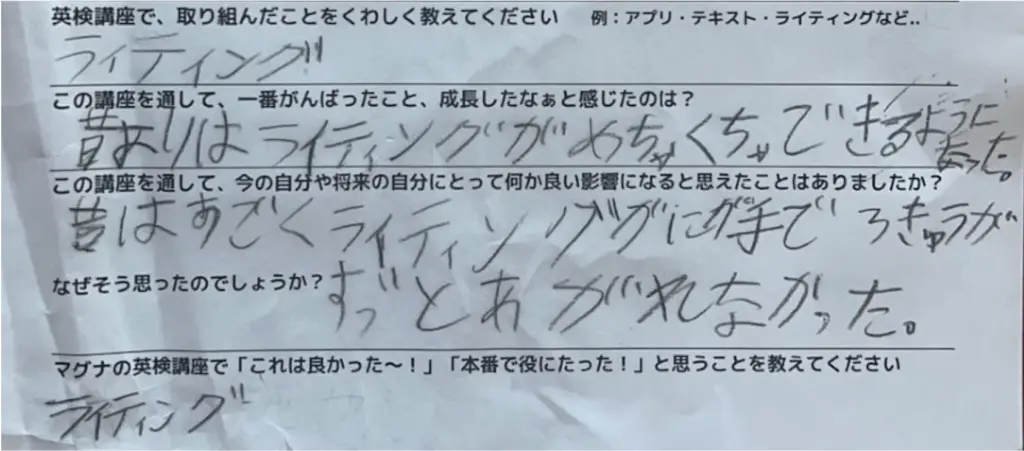 英検講座で、取り組んだことをくわしく教えてください　例：アプリ・テキスト・ライティングなど..
ライティング
この講座を通して、一番がんばったこと、成長したなぁと感じたのは？
昔よりはライティングがめちゃくちゃできるように
なった。
この講座を通して、今の自分や将来の自分にとって何か良い影響になると思えたことはありましたか？
昔はすごくライティングがにが手でろきゅうが
なぜそう思ったのでしょうか？
ずっとあがれなかった。
マグナの英検講座で「これは良かった〜！」「本番で役にたった！」と思うことを教えてください
ライティング